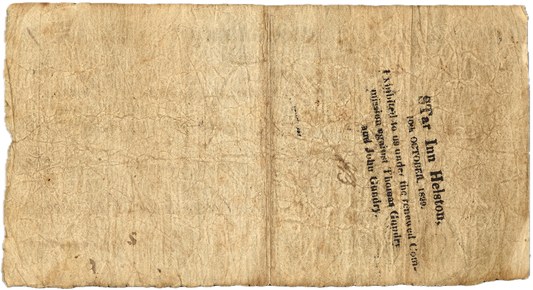 STar Inn Helston,
10th OCTOBER, 1829.
Exhibited to us under the renewed Com-
mission against Thomas Gundry
and John Gundry.